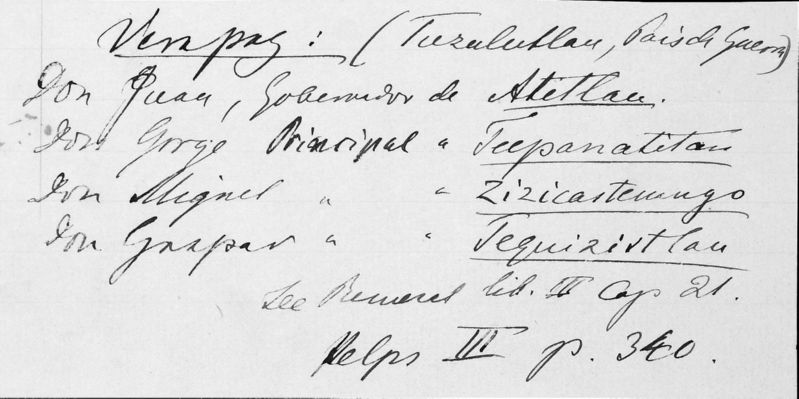 Verapaz: (Tuzulutlan, Pais de Guerra)
Don Juan, Gobernador de Atitlan.
Don Gorge Principal " Tecpanatitan
Don Miguel " " Zizicastenango
Don Gaspar " " Tequizistlan
See Remesel lib. III Cap 21.
Helps III p. 340.